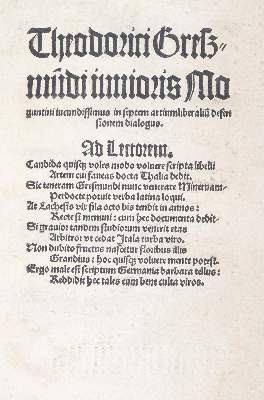 Theodorici Gresz-
mūdi iunioris Mo
guntini iucundissimus in septem artium liberaliū defen
sionem dialogus.
Ad Lectorem.
Candida quisq; voles modo voluere scripta libelli
Artem cui faueas docta Thalia dedit.
Sic teneram Gresmundi nunc venerare Mineruam
Perdocte potuit verba latina loqui.
At Lachesis vix fila octo bis tendit in annos:
Recte si memini: cum hec documenta dedit.
Si grauior tandem studiorum venerit etas
Arbitror vt cedat Itala turba viro.
Non dubito fructus nascetur floribus illis
Grandius: hoc quisq; voluere mente potest.
Ergo male est scriptum Germania barbara tellus:
Reddidit hec tales cum bene culta viros.